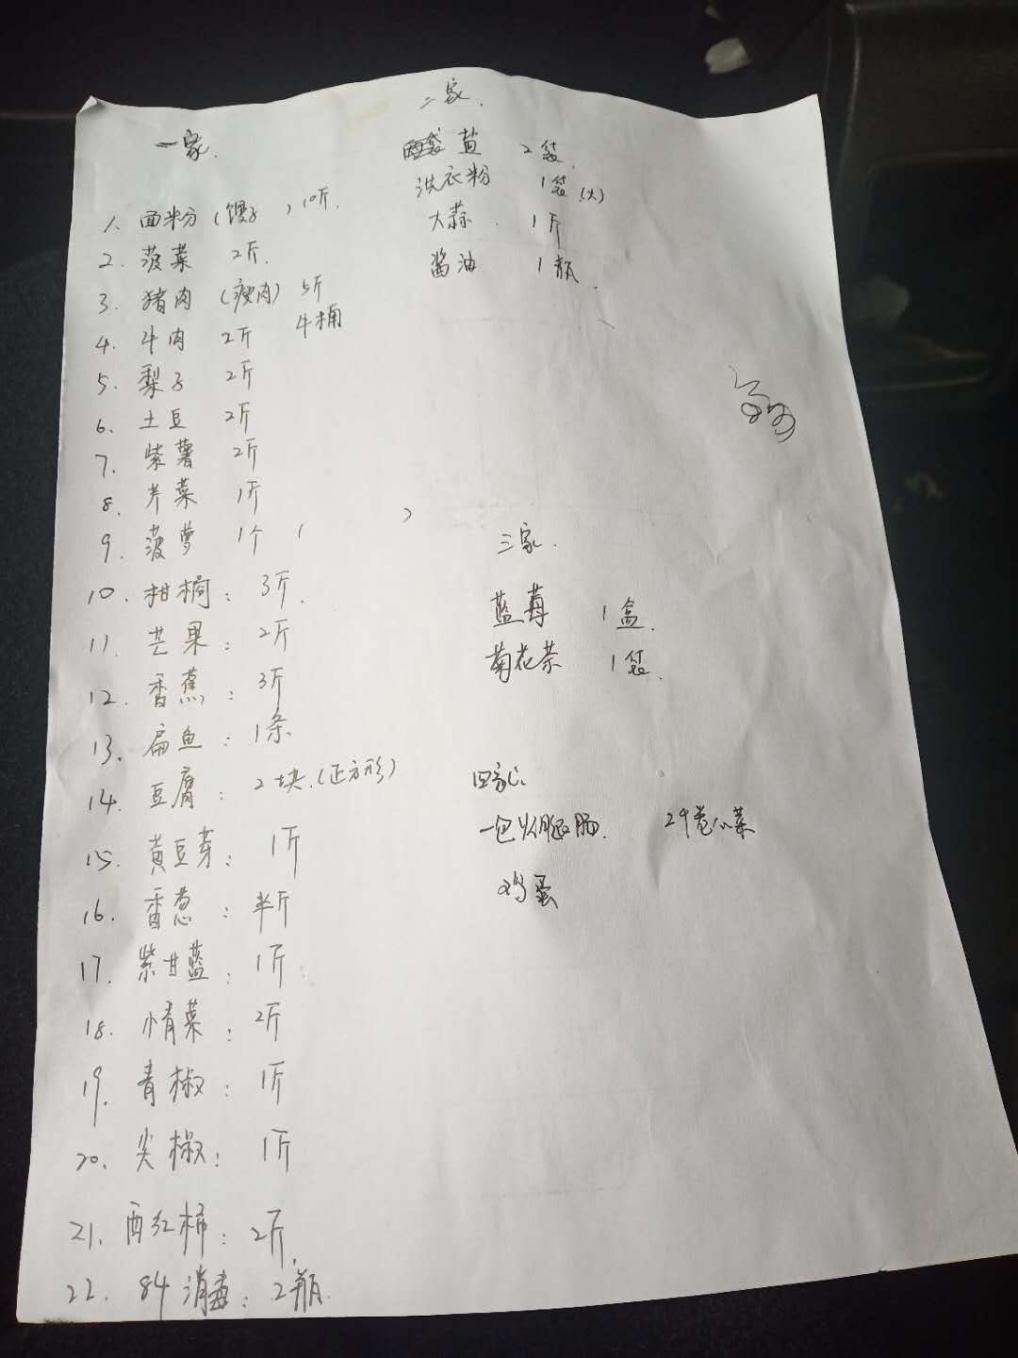 一家.
1. 面粉 (馒子 ) 10斤.
2. 菠菜 2斤.
3. 猪肉 (瘦肉) 5斤
4. 牛肉 2斤 牛楠
5. 梨子 2斤
6. 土豆 2斤
7. 紫薯 2斤
8. 芹菜 1斤
9. 菠萝 1个 ( )
10. 柑橘: 3斤.
11. 芒果: 2斤
12. 香蕉: 3斤
13. 扁鱼: 1条
14. 豆腐: 2块.(正方形)
15. 黄豆芽: 1斤
16. 香葱: 半斤
17. 紫甘蓝: 1斤
18. 小青菜: 2斤
19. 青椒: 1斤
20. 尖椒: 1斤
21. 西红柿: 2斤.
22. 84消毒: 2瓶.
二家.
盐 2袋.
洗衣粉 1袋(大)
大蒜. 1斤
酱油 1瓶.
三家.
蓝莓 1盒.
菊花茶 1袋.
四家
一包火腿肠. 小菜
鸡蛋